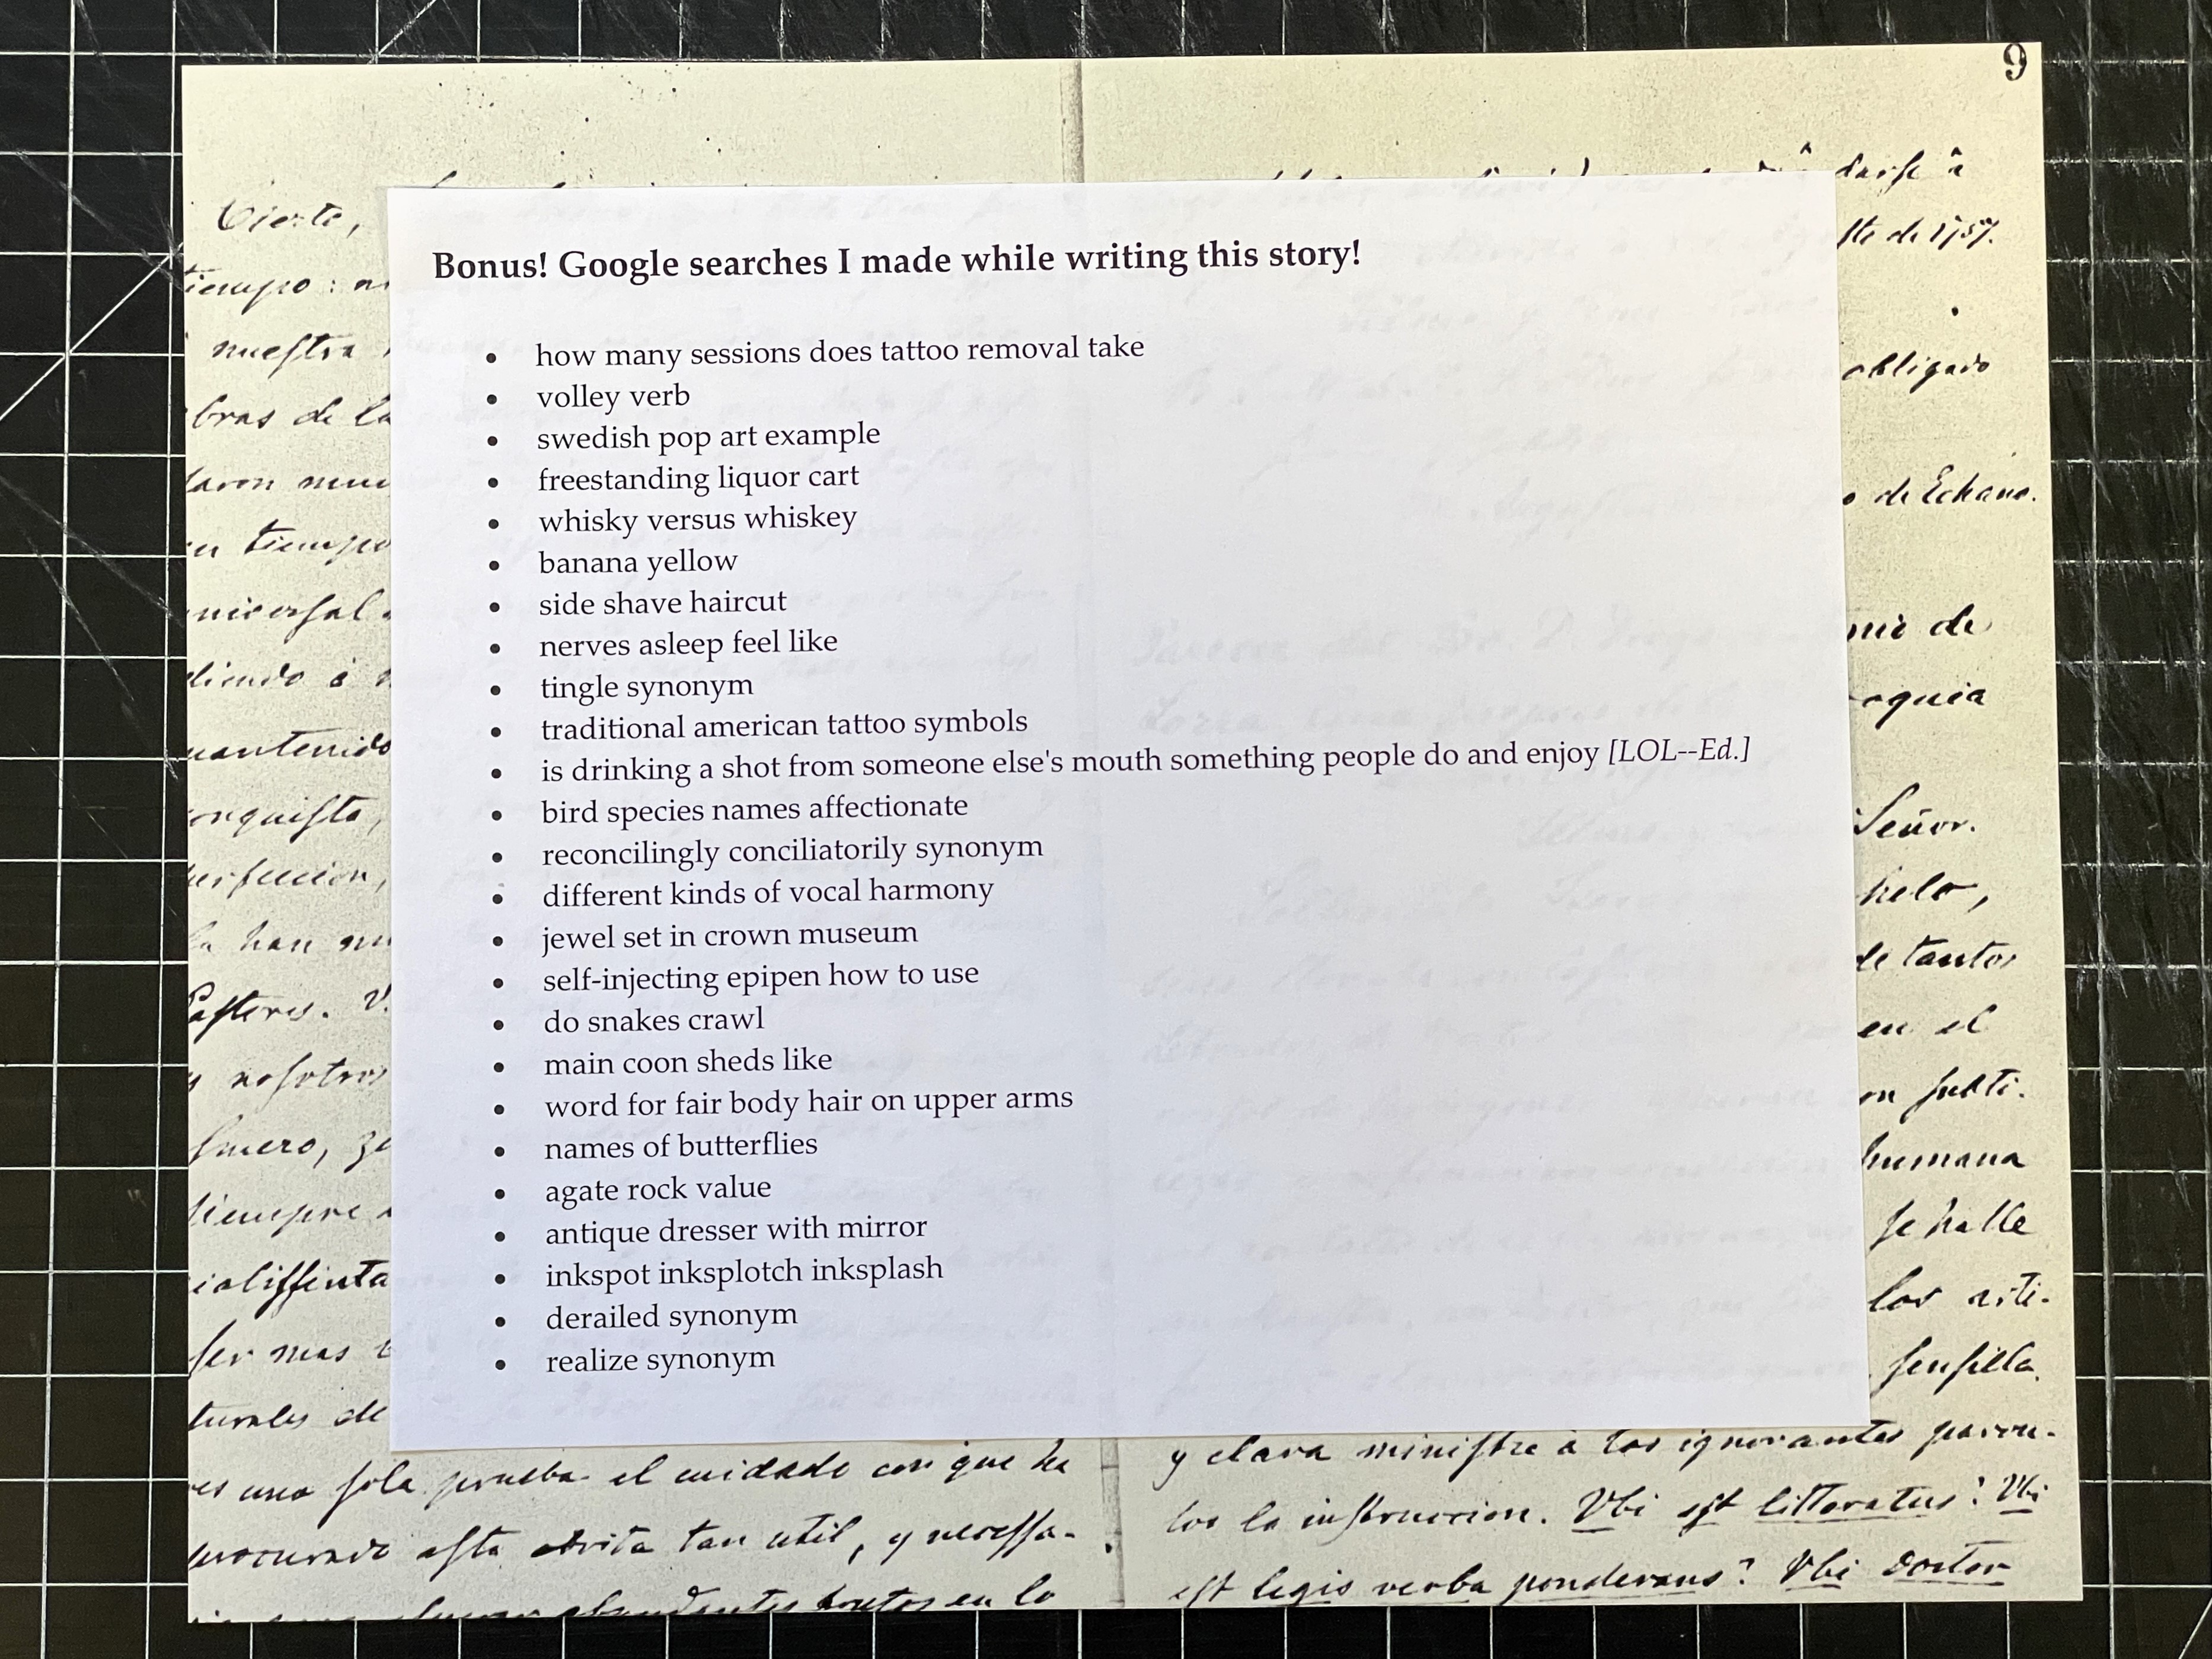 9
Bonus! Google searches I made while writing this story!
• how many sessions does tattoo removal take
• volley verb
• swedish pop art example
• freestanding liquor cart
• whisky versus whiskey
• banana yellow
• side shave haircut
• nerves asleep feel like
• tingle synonym
• traditional american tattoo symbols
• is drinking a shot from someone else's mouth something people do and enjoy [LOL--Ed.]
• bird species names affectionate
• reconcilingly conciliatorily synonym
• different kinds of vocal harmony
• jewel set in crown museum
• self-injecting epipen how to use
• do snakes crawl
• main coon sheds like
• word for fair body hair on upper arms
• names of butterflies
• agate rock value
• antique dresser with mirror
• inkspot inksplotch inksplash
• derailed synonym
• realize synonym
nuestra
bras de la
tiempo
nosotros
ser mas
turales de
una sola prueba el cuidado con que ha
esta obrita tan util, y necessa-
darse â
de 1757.
obligado
de Echano.
de
Señor.
de tantos
en el
humana
se halle
los arti-
y clara ministre à los ignorantes parvu-
los la instruccion. Vbi est litteratus? Vbi
est legis verba ponderans? Vbi Doctor